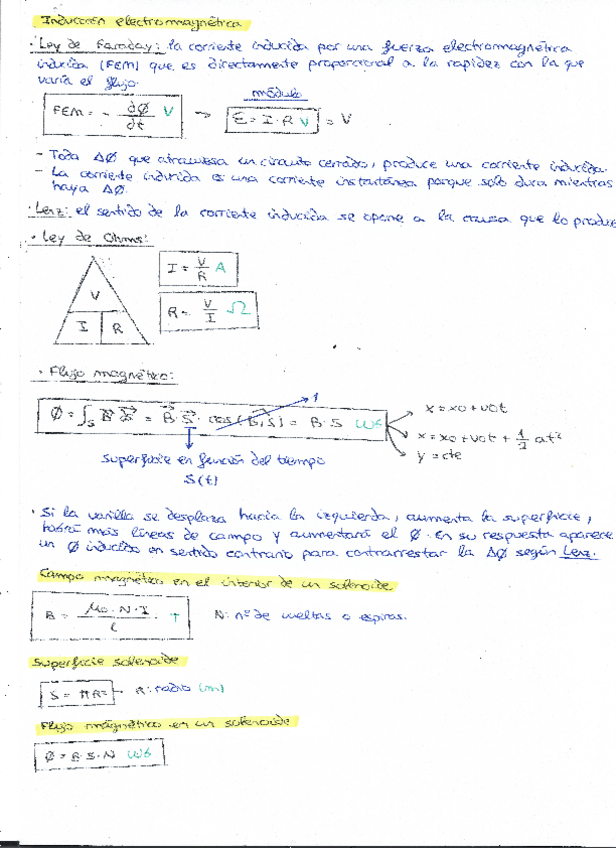 Inducción electromagnética
· Ley de Faraday: la corriente inducida por una fuerza electromagnética
inducida (FEM) que es directamente proporcional a la rapidez con la que
varía el flujo.
módulo
FEM = - dØ/dt V → Ɛ = I · R V = V
- Toda ΔØ que atraviesa un circuito cerrado, produce una corriente inducida.
- La corriente inducida es una corriente instantánea porque solo dura mientras
haya ΔØ.
· Lenz: el sentido de la corriente inducida se opone a la causa que lo produce
· Ley de Ohms:
V
I R
I = V/R A
R = V/I Ω
· Flujo magnético:
1
Ø = ∫s B · S = B · S · cos(B,S) = B · S Wb
x = x0 + v0t
x = x0 + v0t + 1/2 at²
y = cte
superficie en función del tiempo
S(t)
· Si la varilla se desplaza hacia la izquierda, aumenta la superficie,
habrá más líneas de campo y aumentará el Ø. En su respuesta aparece
un Ø inducido en sentido contrario para contrarrestar la ΔØ según Lenz.
Campo magnético en el interior de un solenoide
B = μ0 · N · I / l T N: nº de vueltas o espiras.
Superficie solenoide
S = πR² R: radio (m)
Flujo magnético en un solenoide
Ø = B · S · N Wb